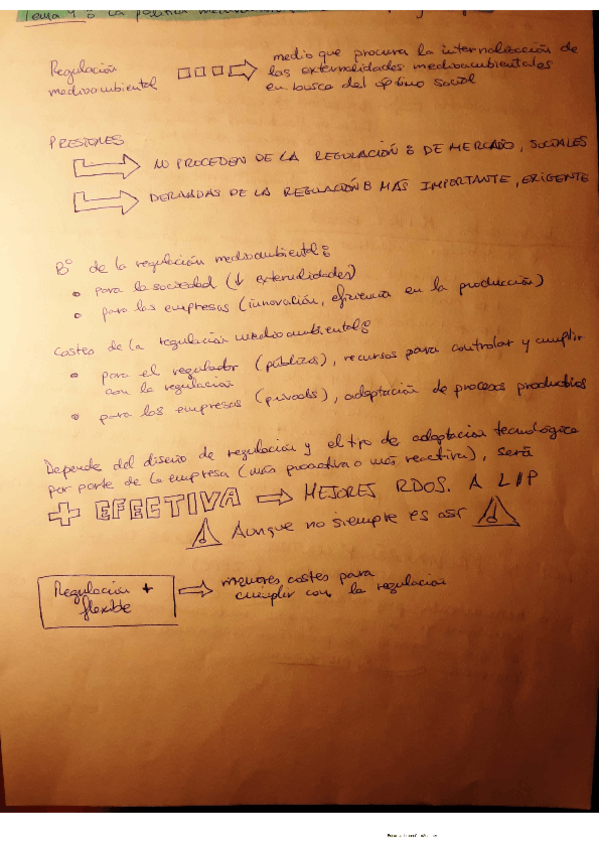 Tema 4 : La política
Regulación
medioambiental
medio que procura la internalización de
las externalidades medioambientales
en busca del óptimo social
PRESIONES
NO PROCEDEN DE LA REGULACIÓN : DE MERCADO, SOCIALES
DERIVADAS DE LA REGULACIÓN : MÁS IMPORTANTE, EXIGENTE
Bº de la regulación medioambiental :
para la sociedad (↓ externalidades)
para las empresas (innovación, eficiencia en la producción)
Costes de la regulación medioambiental :
para el regulador (públicos), recursos para controlar y cumplir
con la regulación
para las empresas (privados), adaptación de procesos productivos
Depende del diseño de regulación y el tipo de adaptación tecnológica
por parte de la empresa (más proactiva o más reactiva), será
+ EFECTIVA ⇒ MEJORES RDOS. A L/P
Aunque no siempre es así
Regulación +
flexible
menores costes para
cumplir con la regulación